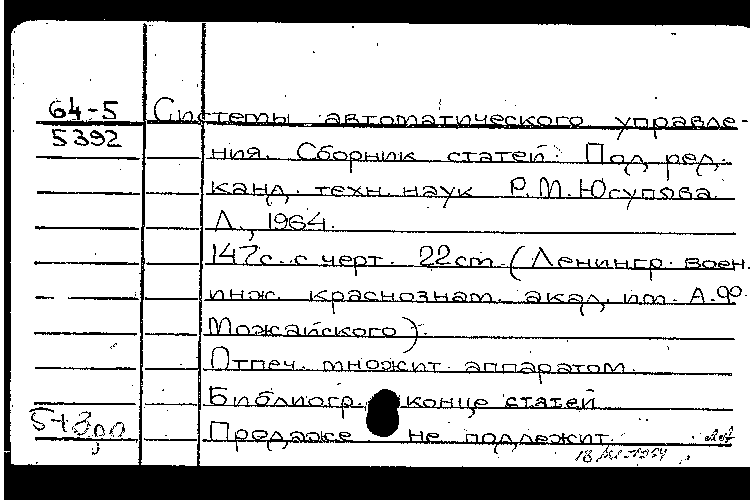 64-5 Системы автоматического управле-
5392
ния. Сборник статей. Под ред.
канд. техн. наук Р.М. Юсупова.
Л., 1964.
147с. с черт. 22см (Ленингр. воен.
инж. краснознам. акад. им. А.Ф.
Можайского).
Отпеч. множит. аппаратом.
Библиогр. конце статей
Продаже не подлежит.